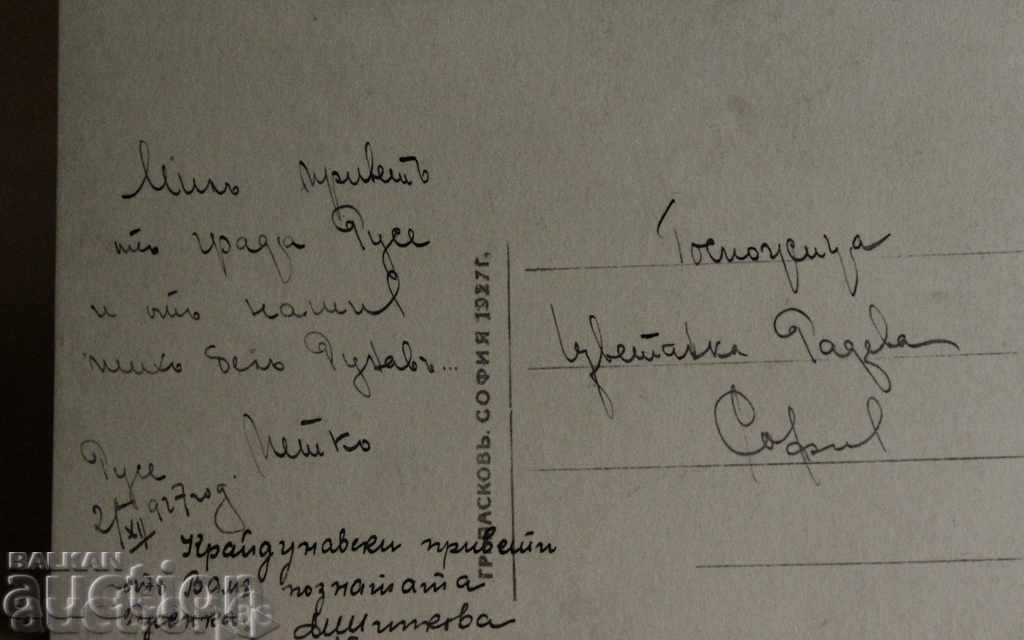 Милъ приветъ
отъ града Русе
и отъ нашия
тихъ белъ Дунавъ...
Петко
Русе
2/XII 927 год.
Крайдунавски привети
отъ Вамъ познатата
Русенка
ГР. ПАСКОВЪ. СОФИЯ 1927 Г.
Госпожица
Цветанка Радева
София
BALKAN
auction